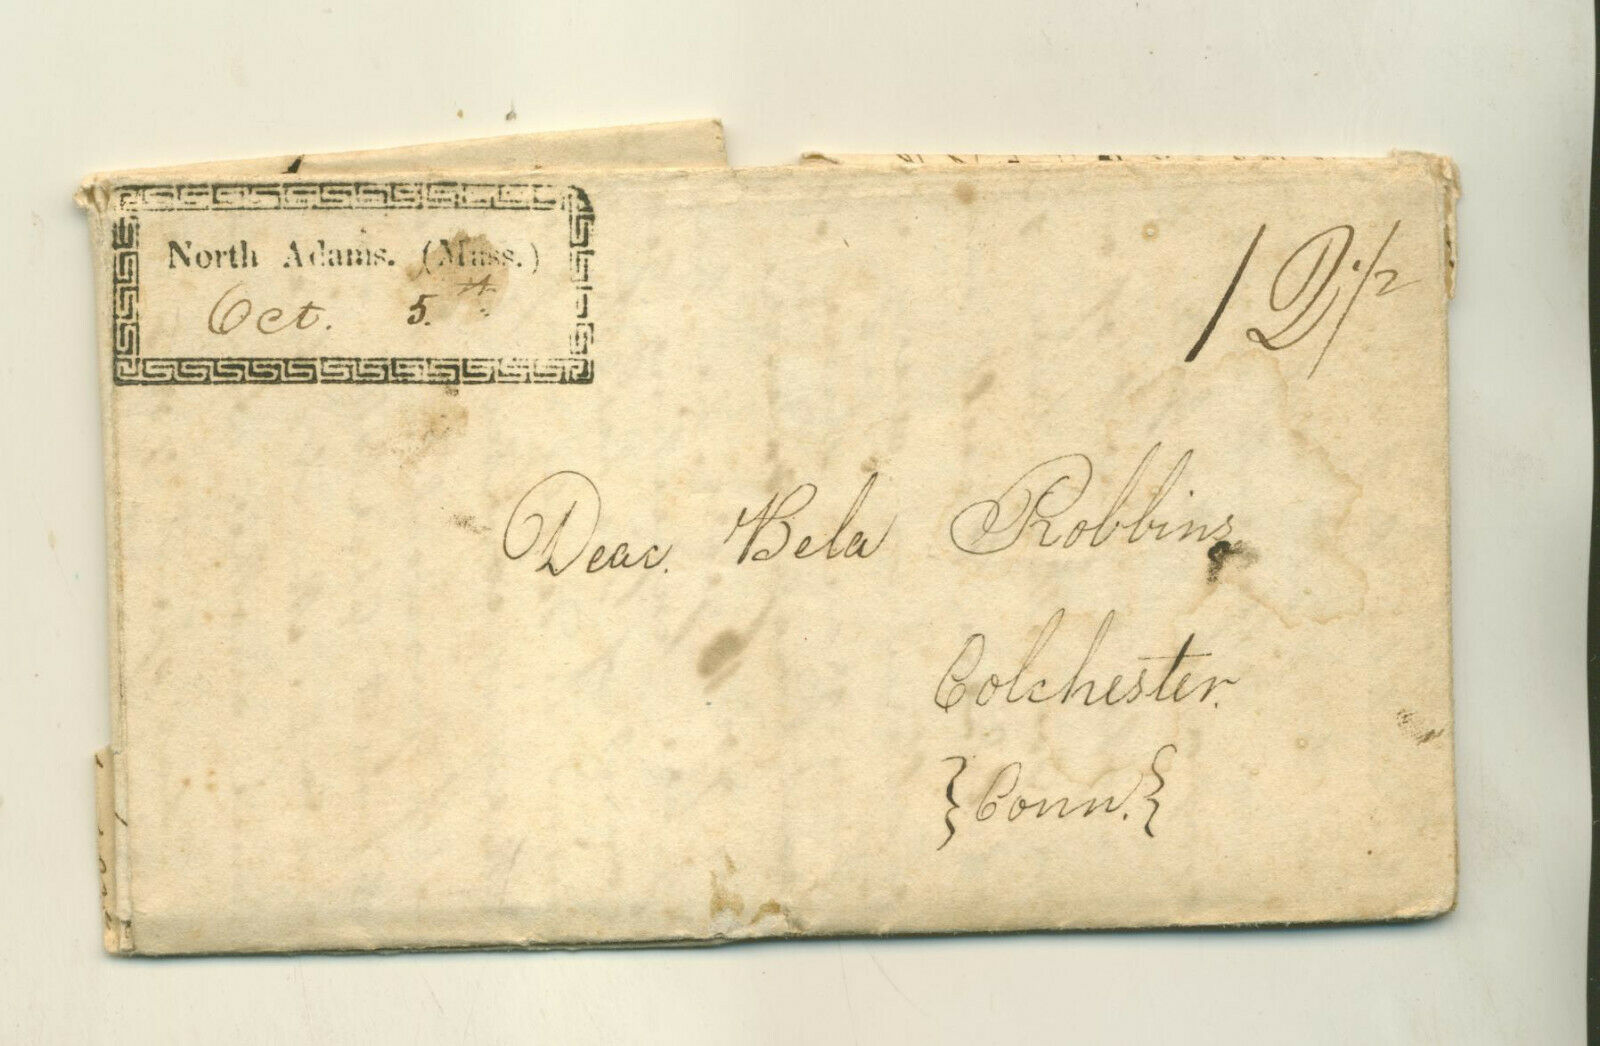 North Adams. (Mass.)
Oct. 5.th
1 D/2
Deac. Bela Robbins
Colchester.
}Conn.}